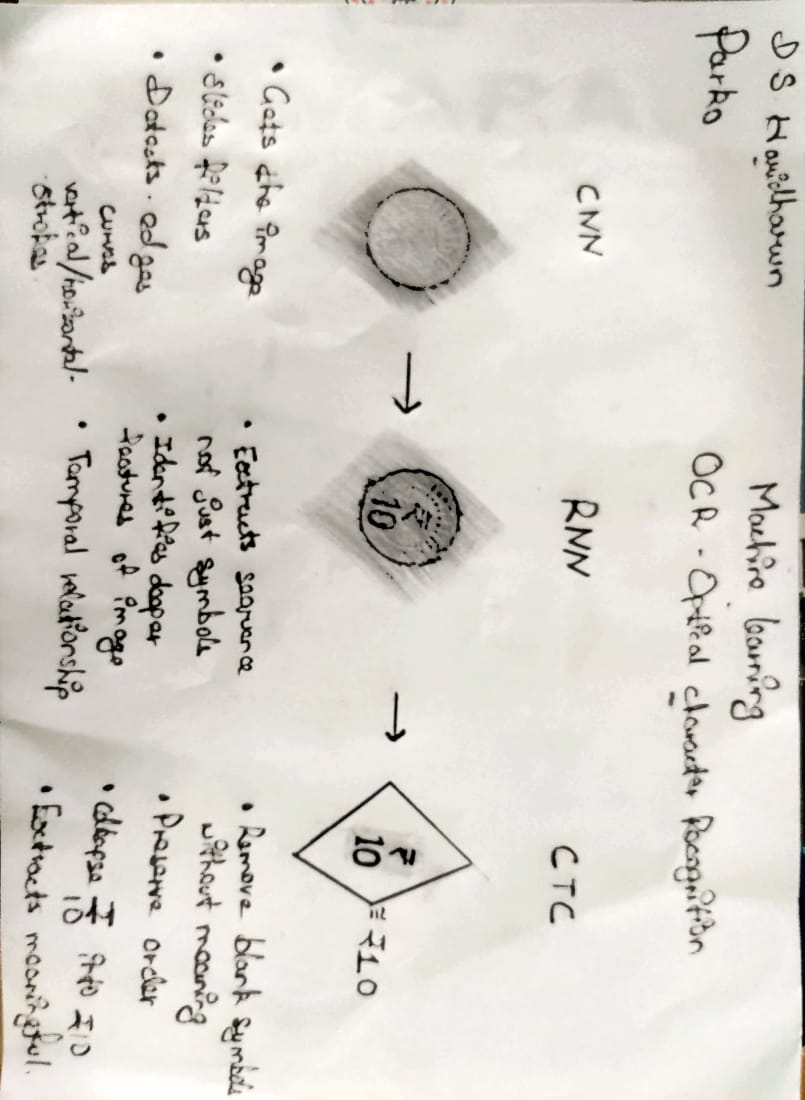 D S Haridharun
Parko
Machine learning
OCR - Optical character Recognition
CNN
• Gets the image
• Slides filters
• Detects - edges
curves
vertical/horizontal-
strokes.
RNN
₹
10
• Extracts sequence
not just symbols
• Identifies deeper
features of image
• Temporal relationship
CTC
₹
10
= ₹10
• Remove blank symbols
without meaning
• Preserve order
• Collapse ₹ into ₹10
10
• Extracts meaningful.